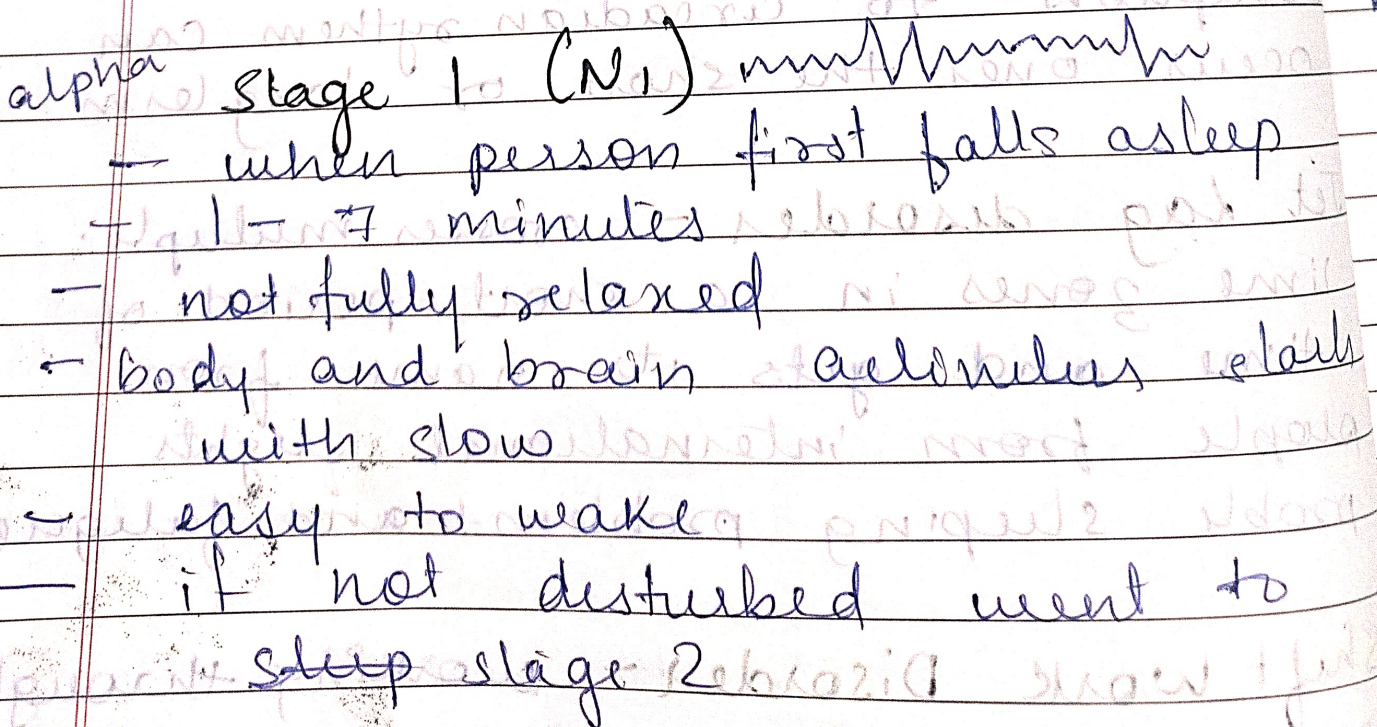 alpha Stage 1 (N1)
- when person first falls asleep
- 1 - 7 minutes
- not fully relaxed
- body and brain activities starts
with slow
- easy to wake.
- if not disturbed went to
sleep stage 2